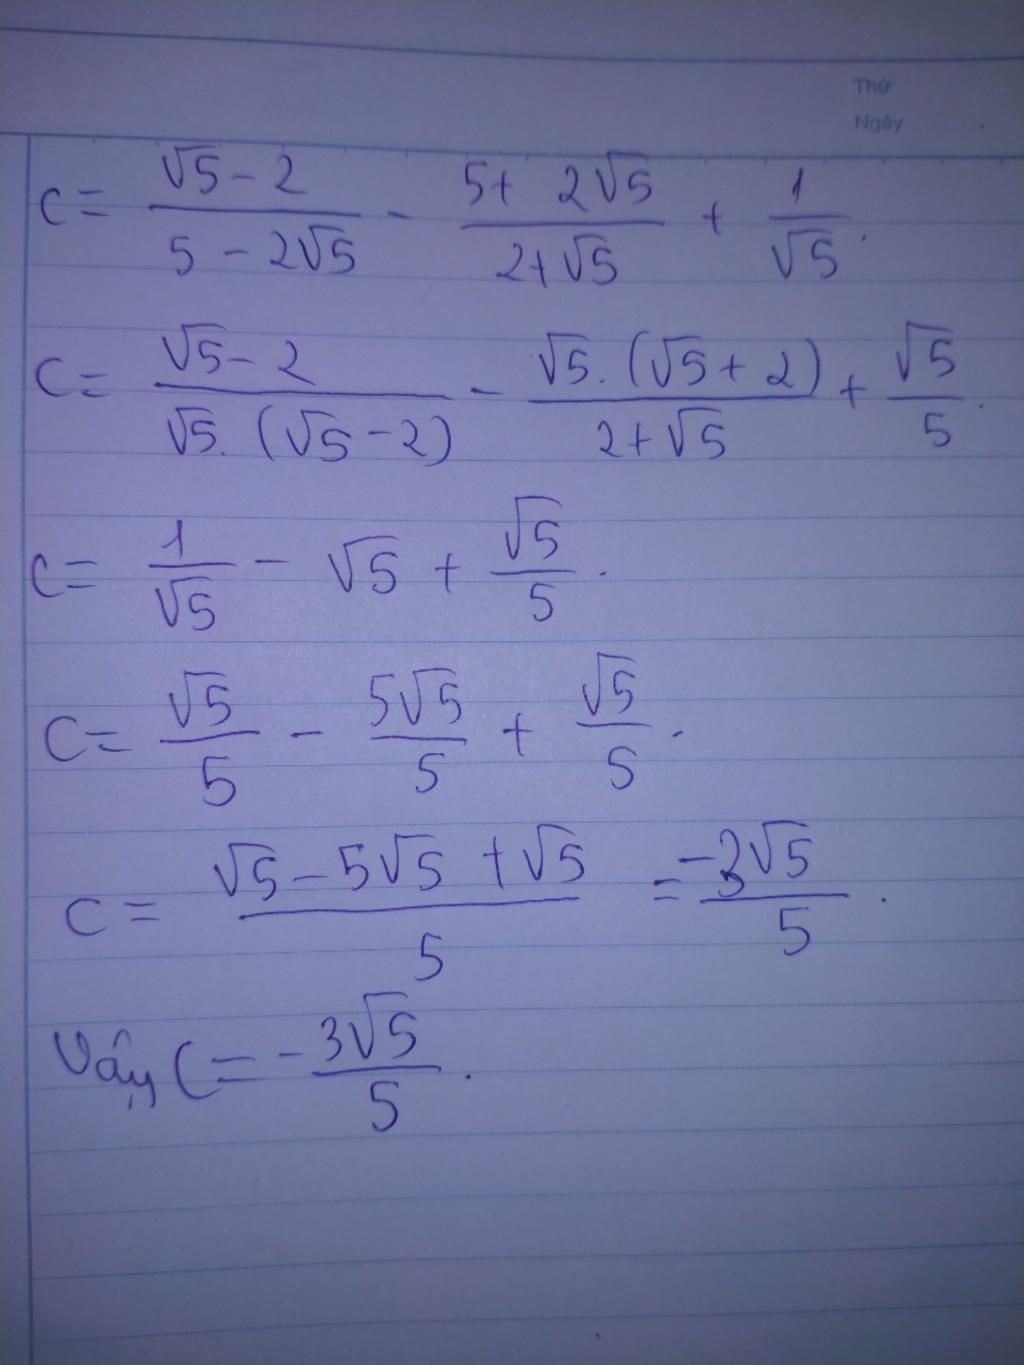 Thứ
Ngày
C = \frac{\sqrt{5} - 2}{5 - 2\sqrt{5}} - \frac{5 + 2\sqrt{5}}{2 + \sqrt{5}} + \frac{1}{\sqrt{5}}.
C = \frac{\sqrt{5} - 2}{\sqrt{5}.(\sqrt{5} - 2)} - \frac{\sqrt{5}.(\sqrt{5} + 2)}{2 + \sqrt{5}} + \frac{\sqrt{5}}{5}.
C = \frac{1}{\sqrt{5}} - \sqrt{5} + \frac{\sqrt{5}}{5}.
C = \frac{\sqrt{5}}{5} - \frac{5\sqrt{5}}{5} + \frac{\sqrt{5}}{5}.
C = \frac{\sqrt{5} - 5\sqrt{5} + \sqrt{5}}{5} = \frac{-3\sqrt{5}}{5}.
Vậy C = -\frac{3\sqrt{5}}{5}.